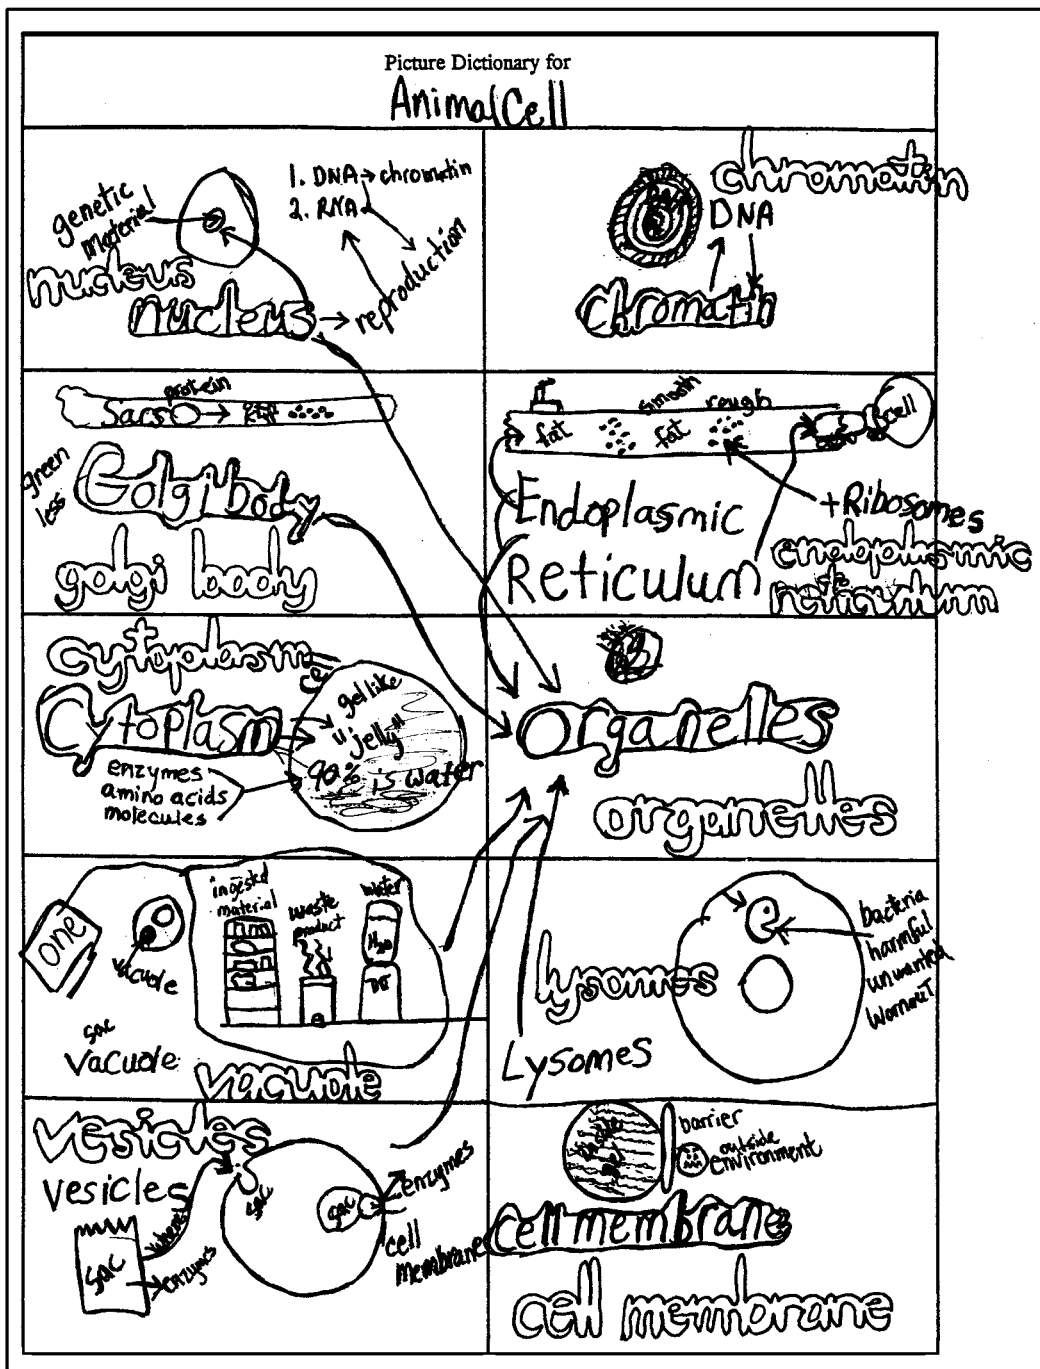 Picture Dictionary for
Animal Cell
genetic
material
1. DNA → chromatin
2. RNA
reproduction
nucleus
nucleus
chromatin
DNA
chromatin
protein
Sacs
green
less
Golgi body
golgi body
smooth
rough
fat
fat
cell
Endoplasmic
Reticulum
+Ribosomes
endoplasmic
reticulum
cytoplasm
Cytoplasm
gel like
"jelly"
90% is water
enzymes
amino acids
molecules
Organelles
organelles
one
vacuole
ingested
material
waste
product
water
H2O
sac
vacuole
vacuole
bacteria
harmful
unwanted
wornout
lysomes
Lysomes
vesicles
vesicles
sac
enzymes
sac
sac
enzymes
cell
membrane
barrier
outside
environment
cell membrane
cell membrane